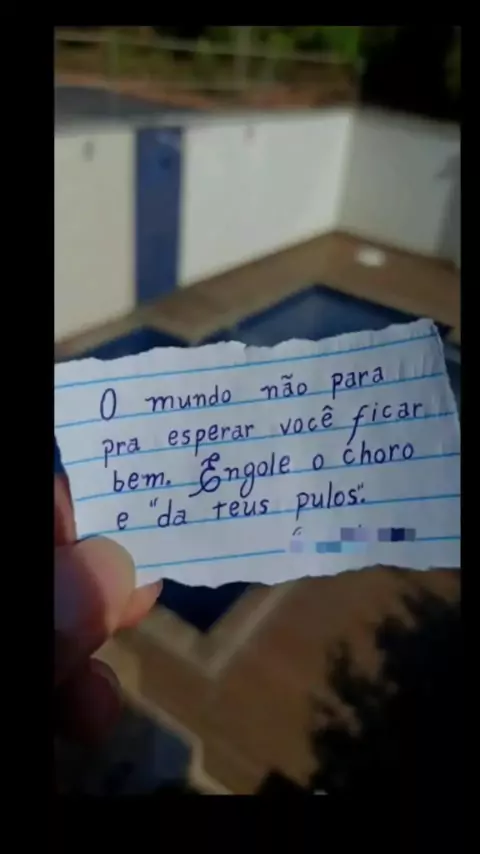 O mundo não para
pra esperar você ficar
bem. Engole o choro
e "da teus pulos".